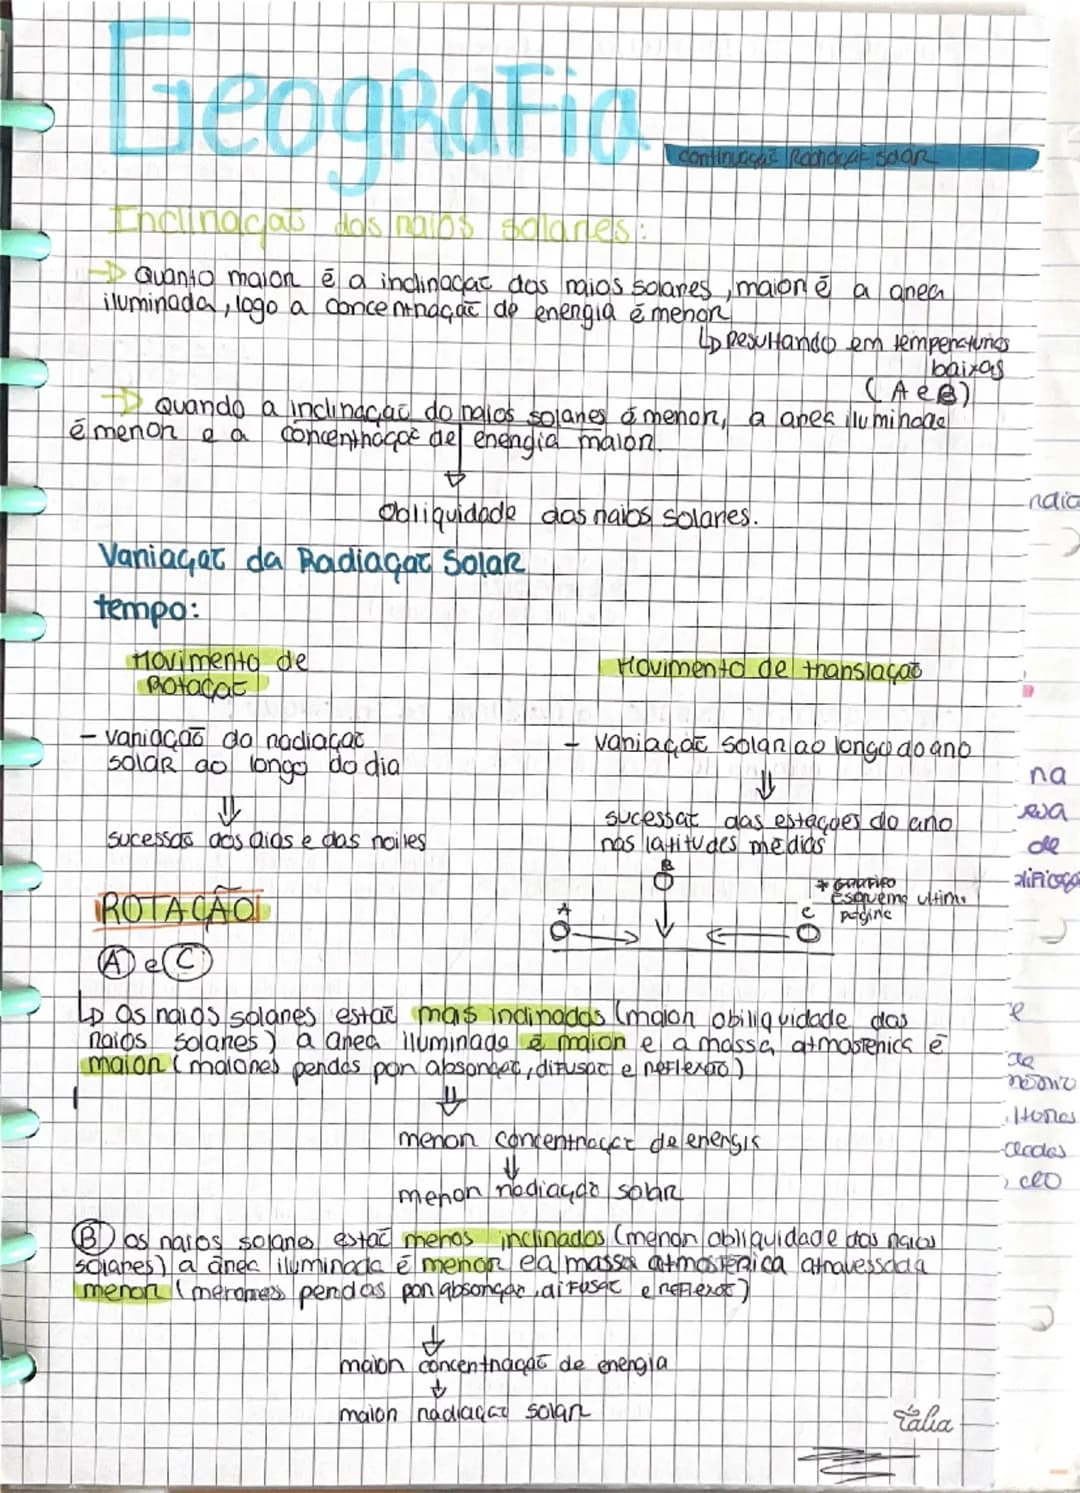 Geografia
continuação Radiação Solar
Inclinação dos raios solares:
→ Quanto maior é a inclinação dos raios solares, maior é a área
iluminada, logo a concentração de energia é menor
↳ Resultando em temperaturas
baixas
(A e B)
→ Quando a inclinação do raios solares é menor, a área iluminada
é menor e a concentração de energia maior.
Obliquidade dos raios solares.
Variação da Radiação Solar
tempo:
Movimento de
Rotação
Movimento de translação
- variação da radiação
solar ao longo do dia
- variação solar ao longo do ano
⇓
⇓
sucessão dos dias e das noites
sucessão das estações do ano
nas latitudes médias
B
* Gráfico
esquema última
página
A
C
ROTAÇÃO
A e C
↳ Os raios solares estão mais inclinados (maior obiliquidade dos
raios solares) a área iluminada é maior e a massa atmosférica é
maior (maiores perdas por absorção, difusão e reflexão)
⇓
menor concentração de energia
⇓
menor radiação solar
B os raios solares estão menos inclinados (menor obliquidade dos raios
solares) a área iluminada é menor e a massa atmosférica atravessada
menor (menores perdas por absorção, difusão e reflexão)
↓
maior concentração de energia
↓
maior radiação solar
Tália
na
de
e
de